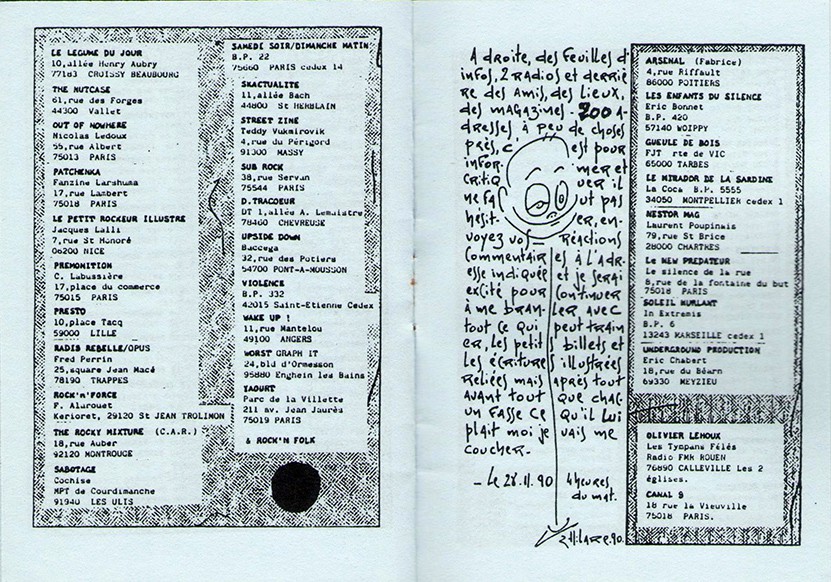 LE LEGUME DU JOUR
10,allée Henry Aubry
77183 CROISSY BEAUBOURG
THE NUTCASE
61,rue des Forges
44300 Vallet
OUT OF NOWHERE
Nicolas Ledoux
55,rue Albert
75013 PARIS
PATCHENKA
Fanzine Larshuma
17,rue Lambert
75018 PARIS
LE PETIT ROCKEUR ILLUSTRE
Jacques Lalli
7,rue St Honoré
06200 NICE
PREMONITION
C. Labussière
17,place du commerce
75015 PARIS
PRESTO
10,place Tacq
59000 LILLE
RADIS REBELLE/OPUS
Fred Perrin
25,square Jean Macé
78190 TRAPPES
ROCK'n'FORCE
F. Alurouet
Kerioret, 29120 St JEAN TROLIMON
THE ROCKY MIXTURE (C.A.R.)
18,rue Auber
92120 MONTROUGE
SABOTAGE
Cochise
MPT de Courdimanche
91940 LES ULIS
SAMEDI SOIR/DIMANCHE MATIN
B.P. 22
75660 PARIS cedex 14
SKACTUALITE
11,allée Bach
44800 St HERBLAIN
STREET ZINE
Teddy Vukmirovik
4,rue du Périgord
91300 MASSY
SUB ROCK
38,rue Servan
75544 PARIS
D.TRACOEUR
DT 1,allée A. Lemaistre
78460 CHEVREUSE
UPSIDE DOWN
Baccega
32,rue des Potiers
54700 PONT-A-MOUSSON
VIOLENCE
B.P. 332
42015 Saint-Etienne Cedex
WAKE UP !
11,rue Mantelou
49100 ANGERS
WORST GRAPH IT
24,bld d'Ormesson
95880 Enghein les Bains
YAOURT
Parc de la Villette
211 av. Jean Jaurès
75019 PARIS
& ROCK'N FOLK
A droite, des feuilles d'
infos, 2 radios et derriè
re des amis, des lieux,
des magazines - 200 a-
dresses, à peu de choses
près, c'est pour
infor- mer et
critiq uer il
ne fa ut pas
hésit- er, en-
voyez vos réactions
commentair es à l'adr-
esse indiquée et je serai
excité pour continuer
à me bran- ler avec
tout ce qui peut train
er, les petits billets et
les écritures illustrées
reliées mais après tout
avant tout que chac-
un fasse ce qu'il lui
plait moi je vais me
coucher.
- Le 28.11.90 4 heures
du mat.
ARSENAL (Fabrice)
4,rue Riffault
86000 POITIERS
LES ENFANTS DU SILENCE
Eric Bonnet
B.P. 420
57140 WOIPPY
GUEULE DE BOIS
FJT rte de VIC
65000 TARBES
LE MIRADOR DE LA SARDINE
La Coca B.P. 5555
34050 MONTPELLIER cedex 1
NESTOR MAG
Laurent Poupinais
79,rue St Brice
28000 CHARTRES
Le NEW PREDATEUR
Le silence de la rue
8,rue de la fontaine du but
75018 PARIS
SOLEIL HURLANT
In Extremis
B.P. 6
13243 MARSEILLE cedex 1
UNDERGROUND PRODUCTION
Eric Chabert
18,rue du Béarn
69330 MEYZIEU
OLIVIER LEHOUX
Les Tympans Fêlés
Radio FMR ROUEN
76890 CALLEVILLE Les 2
églises.
CANAL 9
18 rue la Vieuville
75018 PARIS.